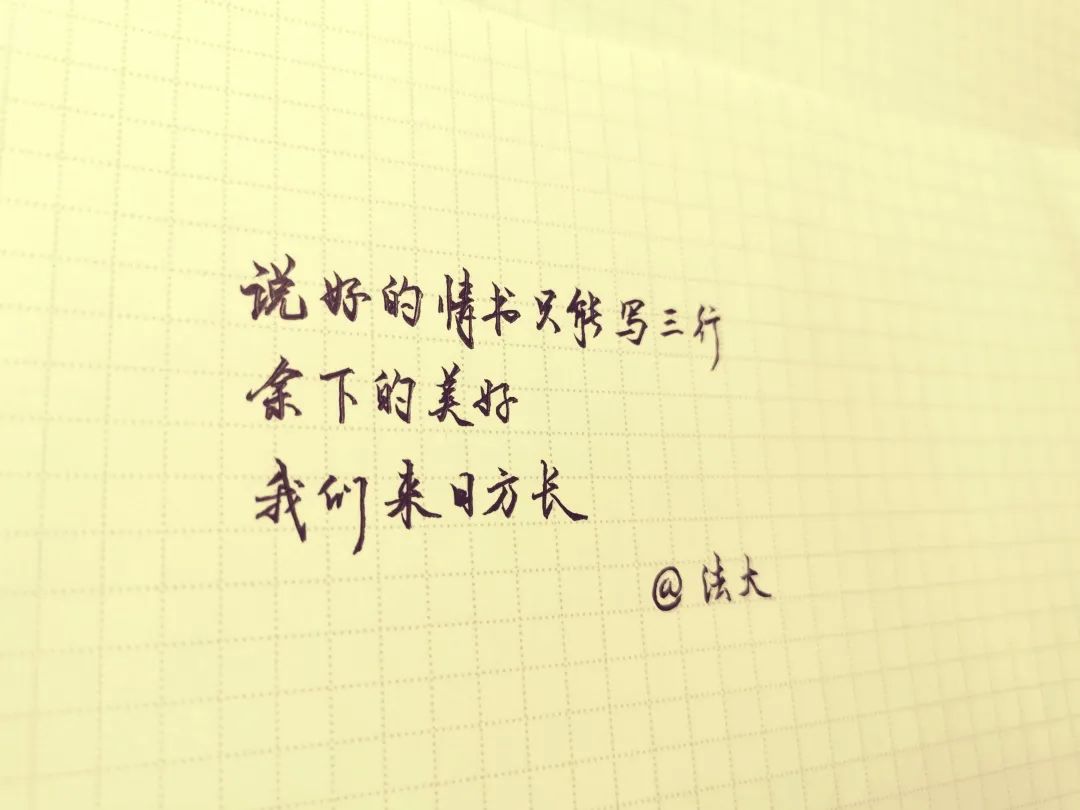 说好的情书只能写三行
余下的美好
我们来日方长
@法大